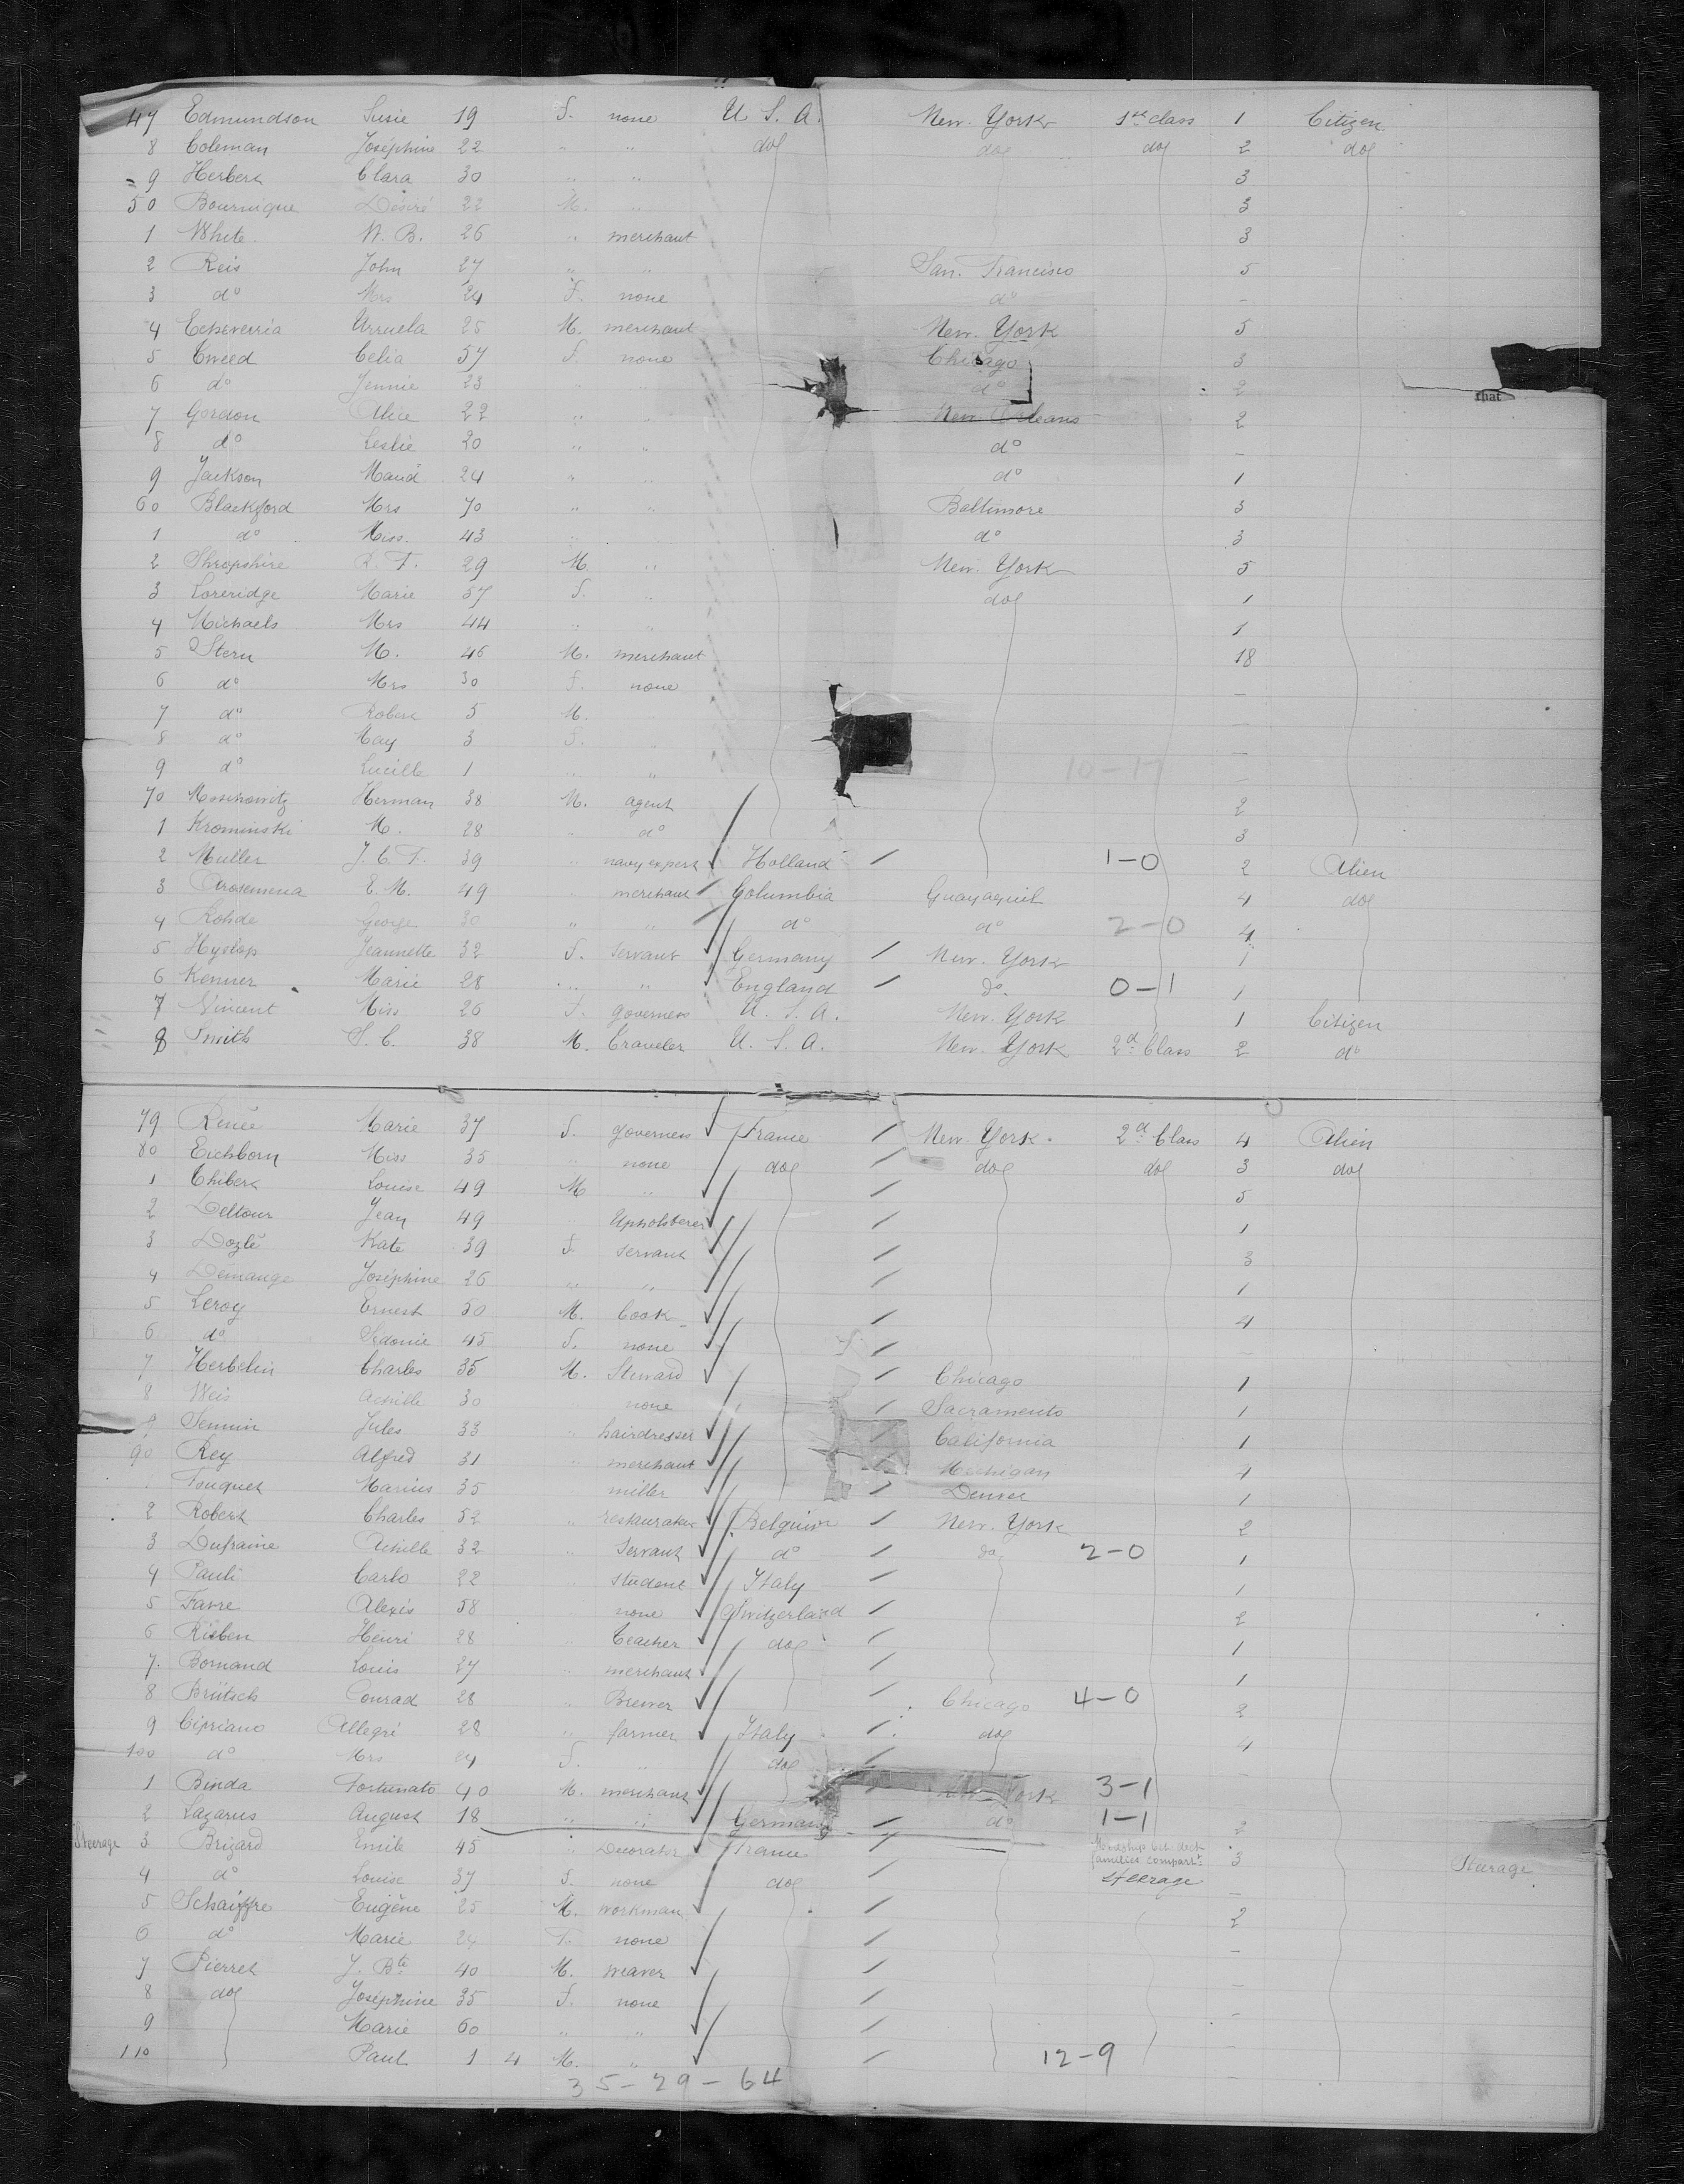 47 Edmundson Susie 19 F. none U. S. A. New. York 1st class 1 Citizen
8 Coleman Joséphine 22 " " do do do 2 do
9 Herbert Clara 30 " " 3
50 Bournique Désiré 22 M. " 3
1 White W. B. 26 " merchant 3
2 Reis John 27 " " San. Francisco 5
3 do Mrs 24 F. none do —
4 Echeverria Urruela 25 M. merchant New. York 5
5 Tweed Celia 57 F. none Chicago 3
6 do Jennie 23 " " do 2
7 Gordon Alice 22 " " New Orleans 2
8 do Leslie 20 " " do —
9 Jackson Maud 24 " " do 1
60 Blackford Mrs 70 " " Baltimore 3
1 do Miss. 43 " do 3
2 Shropshire R. F. 29 M. " New. York 5
3 Loreridge Marie 57 F. " do 1
4 Michaels Mrs 44 " " 1
5 Stern M. 46 M. merchant 18
6 do Mrs 30 F. none —
7 do Robert 5 M. —
8 do May 3 F. —
9 do Lucille 1 " " 10-17 —
70 Moschowitz Herman 38 M. agent 2
1 Krominski M. 28 " do 3
2 Muller J. C. F. 39 " navy expert Holland 1-0 2 Alien
3 Arosemena E. M. 49 " merchant Columbia Guayaquil 4 do
4 Rohde George 30 " " do do 2-0 4
5 Hyslop Jeannette 32 F. servant Germany New. York 1
6 Kenner Marie 28 " " England do. 0-1 1
7 Vincent Miss 26 F. governess U. S. A. New. York 1 Citizen
8 Smith S. C. 38 M. Traveler U. S. A. New. York 2d Class 2 do
79 Renée Marie 37 F. governess France New. York. 2d Class 4 Alien
80 Eichborn Miss 35 " none do do do 3 do
1 Thibert Louise 49 M " 5
2 Deltour Jean 49 Upholsterer 1
3 Dozlé Kate 39 F. servant 3
4 Démange Joséphine 26 " " 1
5 Leroy Ernest 50 M. Cook 4
6 do Sidonie 45 F. none —
7 Herbelin Charles 35 M. Steward Chicago 1
8 Weis Achille 30 none Sacramento 1
9 Semin Jules 33 " hairdresser California 1
90 Rey Alfred 31 merchant Michigan 4
Fouquet Marius 35 miller Denver 1
2 Robert Charles 52 " restaurateur Belguim New. York 2
3 Dufraine Achille 32 " servant do do 2-0 1
4 Pauli Carlo 22 student Italy 1
5 Favre Alexis 58 none Switzerland 2
6 Rieben Henri 28 " Teacher do 1
7. Bornand Louis 27 " merchant 1
8 Brütsch Conrad 28 " Brewer Chicago 4-0 2
9 Cipriano Allegri 28 " farmer Italy do 4
100 do Mrs 24 F. " do —
1 Binda Fortunato 40 M. merchant New York 3-1
2 Lazarus August 18 " " German do 1-1 2
Steerage 3 Brizard Emile 45 " Decorator France families compart. 3 Steerage
4 do Louise 37 F. none do steerage —
5 Schaiffre Eugène 25 M. workman 2
6 do Marie 24 F. none —
7 Pierret J. Bte 40 M. weaver —
8 do Joséphine 35 F. none —
9 Marie 60 " " —
110 Paul 1 4 M. " 12-9 —
35-29-64
that